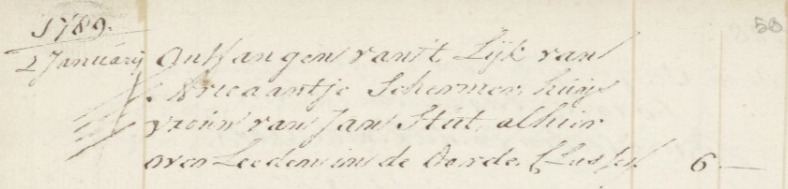 1789.
58
2 January Ontfangen van't Lijk van
Ariaantje Schermer, huijs
vrouw van Jan Stut, alhier
overleeden in de Oorde 6—